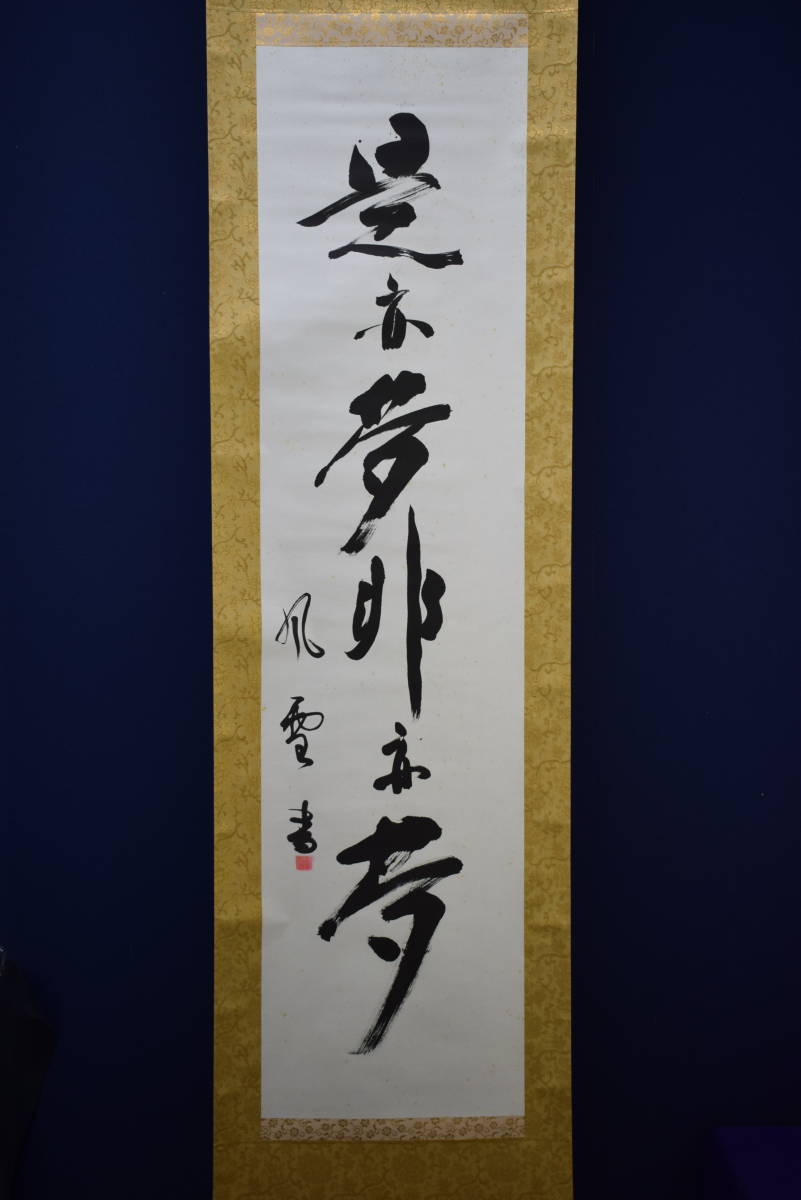 是亦夢非亦夢
風雪書